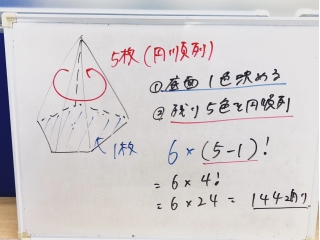 5枚(円順列)
① 底面1色決める
② 残り5色を円順列
1枚
6×(5-1)!
=6×4!
=6×24=144通り